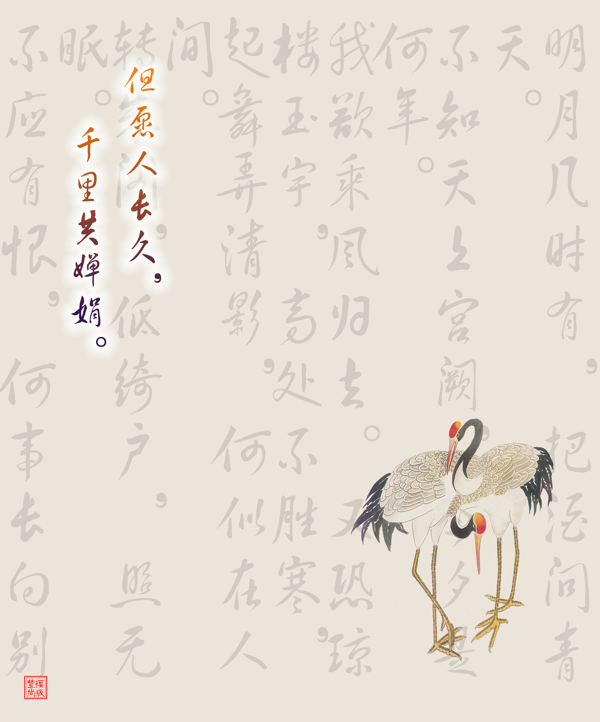 明月几时有，把酒问青
天。
不知天上宫阙，夕是
何年。
我欲乘风归去。又恐琼
楼玉宇，高处不胜寒，
起舞弄清影，何似在人
间。
转朱阁，低绮户，照无
眠。
不应有恨，何事长向别
但愿人长久，
千里共婵娟。